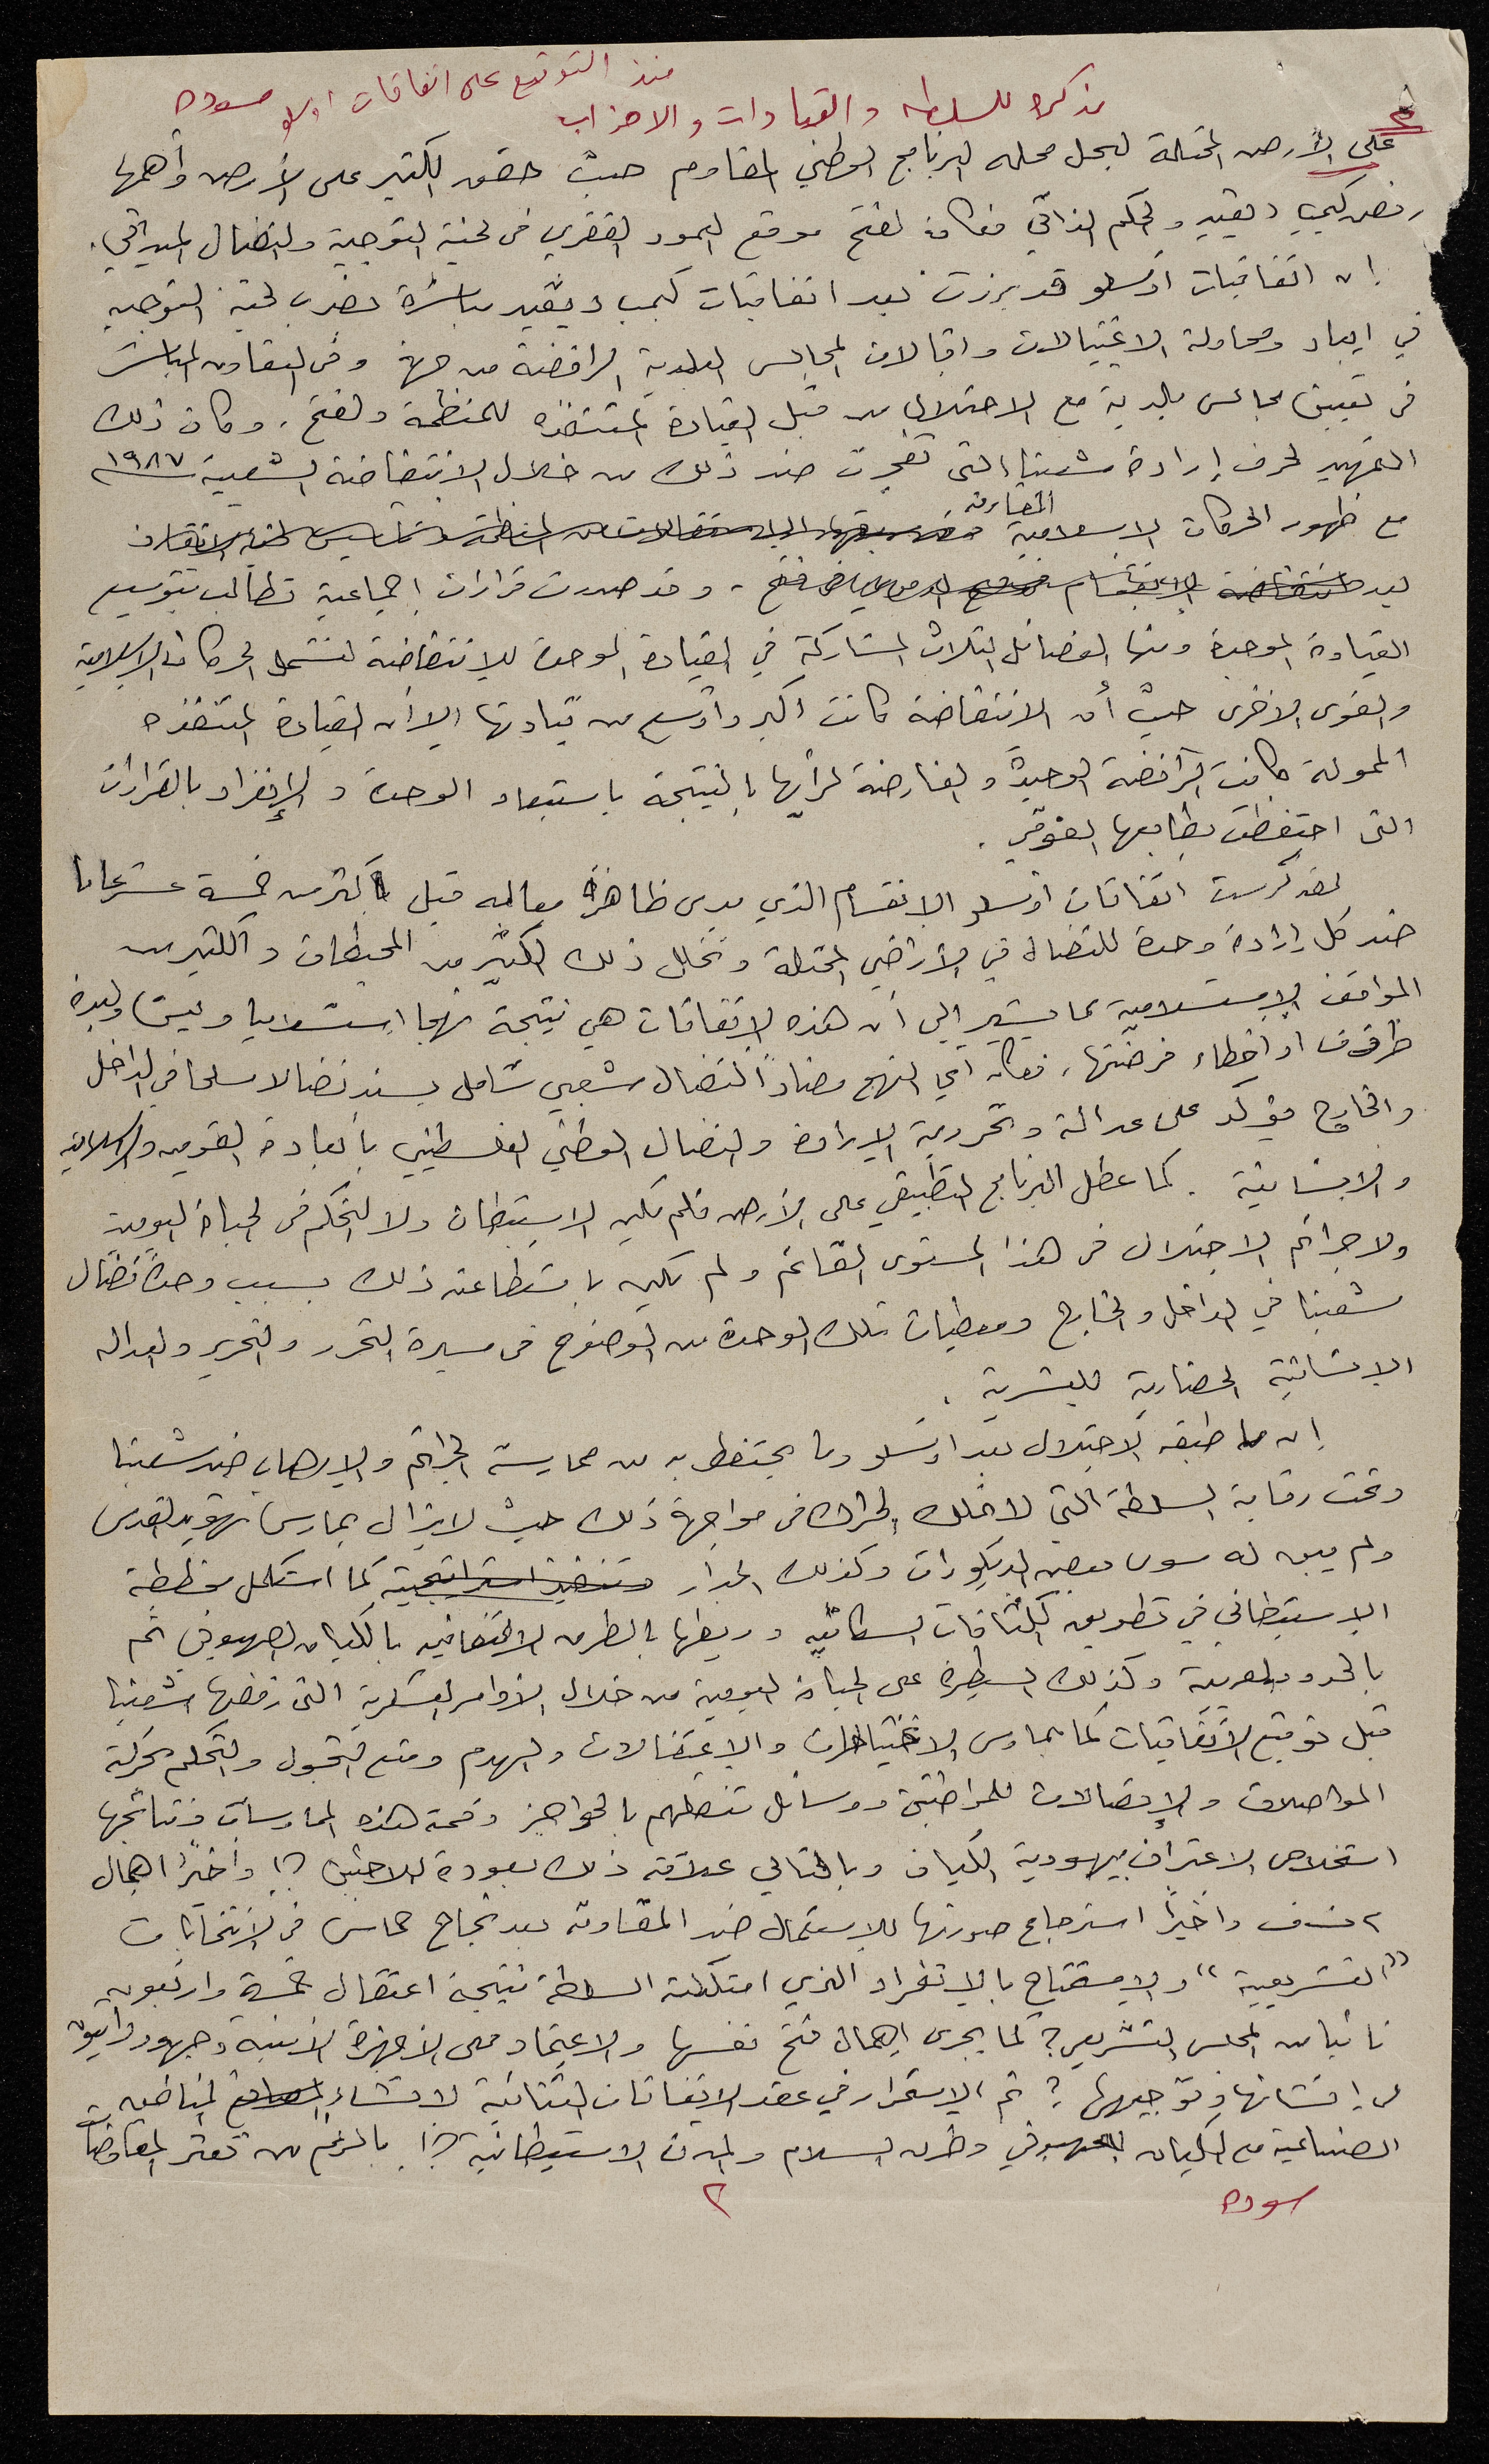 منذ التوقيع على اتفاقات اوسلو مسوده
مذكره للسلطه والقيادات والاحزاب
على الأرض المحتلة ليحل محله البرنامج الوطني المقاوم حيث حقق الكثير على الأرض وأهمها
رفض كيمب ديفيد والحكم الذاتي فكان لفتح موقع العمود الفقري في لجنة التوجيه والنضال الميداني.
إن اتفاقيات أوسلو قد برزت بعد اتفاقيات كمب ديفيد مباشرة بضرب لجنة التوجيه
في ابعاد ومحاولة الاغتيالات واقالات المجالس البلدية الرافضة من جهة وفي التعاون المباشر
في تعيين مجالس بلدية مع الاحتلال من قبل القيادة المتنفذه للمنظمة ولفتح. وكان ذلك
التمهيد لحرف إرادة شعبنا التي تفجرت ضد ذلك من خلال الانتفاضة الشعبية سنة ١٩٨٧
المقاومة
مع ظهور الحركات الاسلامية
بعد وقد صدرت قرارات إجماعية تطالب بتوسيع
القيادة الموحدة ومنها الفصائل الثلاث المشاركة في القيادة الموحدة للإنتفاضة لتشمل الحركات الإسلامية
والقوى الاخرى حيث أن الانتفاضة كانت أكبر وأوسع من قيادتها الا أن القيادة المتنفذه
الممولة كانت الرافضة الوحيدة والفارضة لرأيها بالنتيجة باستبعاد الوحدة والإنفراد بالقرارات
التي احتفظت بطابعها الفوقي.
لقد كرست اتفاقات أوسلو الانقسام الذي يرى ظاهرة معالمه قبل أكثر من خمسة عشر عاما
ضد كل إرادة وحدة للنضال في الأراضي المحتلة وتخلل ذلك الكثير من المحطات والكثير من
المواقف الإستسلامية مما يشير إلى أن هذه الإتفاقات هي نتيجة نهجا استسلاميا وليس وليدة
ظروف او أخطاء فرضتها، فكان أي النهج مضاداً لنضال شعبي شامل يسند نضالا مسلحا في الداخل
والخارج مؤكد على عدالة وتحررية الإرادة والنضال الوطني الفلسطيني بأبعاده القوميه والإسلامية
والإنسانية. كما عطل البرنامج التطبيقي على الأرض فلم يكن الإستيطان ولا التحكم في الحياة اليومية
ولا جرائم الاحتلال في هذا المستوى القائم ولم يكن باستطاعته ذلك بسبب وحدة نضال
شعبنا في الداخل والخارج ومعطيات تلك الوحدة من الوضوح في مسيرة التحرر والتحرير والعداله
الإنسانية الحضارية للبشرية.
إن ما طبقه الإحتلال بعد اوسلو وما يحتفظ به من ممارسة الجرائم والإرهاب ضد شعبنا
وتحت رقابة السلطة التي لا تملك الحراك في مواجهة ذلك حيث لا يزال يمارس تهويد القدس
ولم يبق له سوى بعض الديكورات وكذلك الجدار وتنفيذ استراتيجيته كما استكمل مخططه
الإستيطاني في تطويق الكثافات السكانيه وربطها بالطرق الالتفافيه بالكيان الصهيوني ثم
بالحدود العربية وكذلك السيطرة على الحياة اليومية من خلال الأوامر العسكرية التي رفضها شعبنا
قبل توقيع الإتفاقيات كما يمارس الاغتيالات والاعتقالات والهدم ومنع التجول والتحكم بحركة
المواصلات والإتصالات للمواطنين ووسائل تنقلهم بالحواجز وقمة هذه الممارسات ونتائجها
استخلاص الاعتراف بيهودية الكيان وبالتالي علاقة ذلك بعودة اللاجئين ؟! وأخيراً اهمال
م.ت.ف وأخيراً استرجاع صورتها للإستعمال ضد المقاومة بعد نجاح حماس في الإنتخابات
"التشريعية" والإستفتاح بالإنفراد الذي امتلكته السلطة نتيجة اعتقال خمسة واربعون
نائبا من المجلس التشريعي؟ كما يجري إهمال فتح نفسها والاعتماد على الأجهزة الأمنية وجهود دايتون
في إنشائها وتوجيهها؟ ثم الإستمرار في عقد الإتفاقات الثنائية لانشاء المناطق
الصناعية مع الكيان الصهيوني وطرق السلام والمدن الاستيطانية؟! بالرغم من تعثر المفاوضات
مسوده
٢